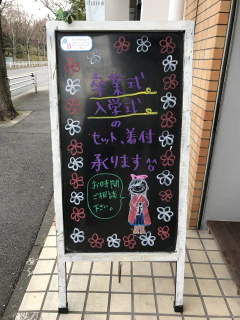 卒業式
入学式
の
セット、着付
承ります
お時間
ご相談
下さい。